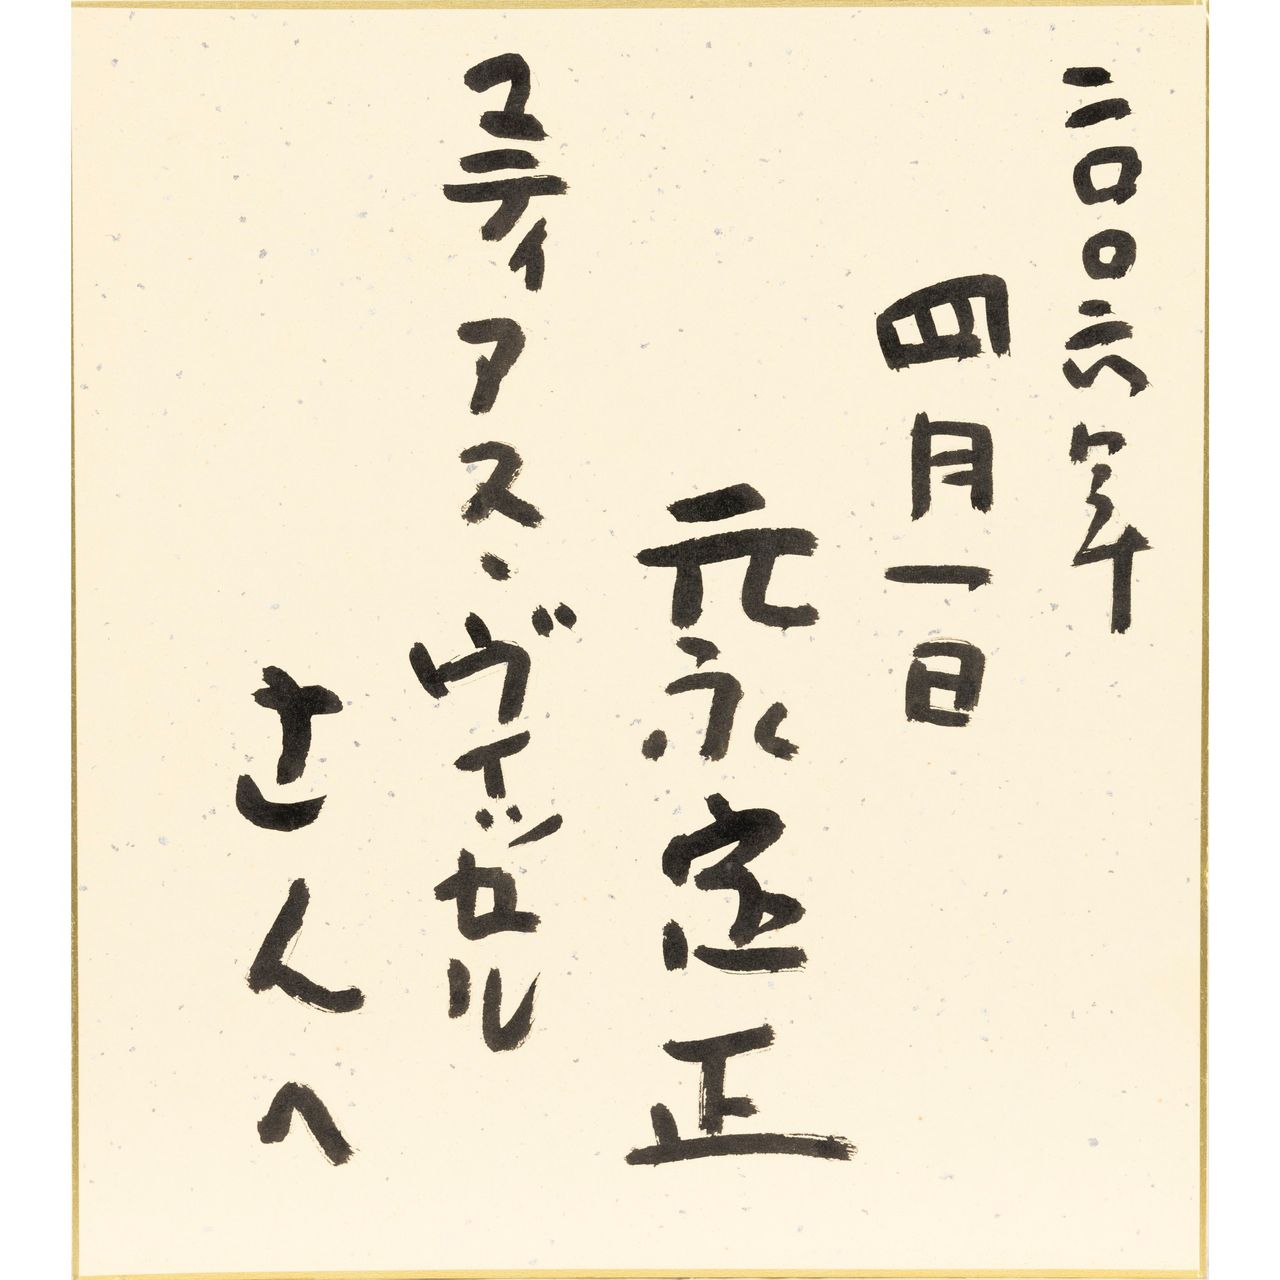 二〇〇六年
四月一日
元永定正
ユティアス・ヴィッセル
さんへ